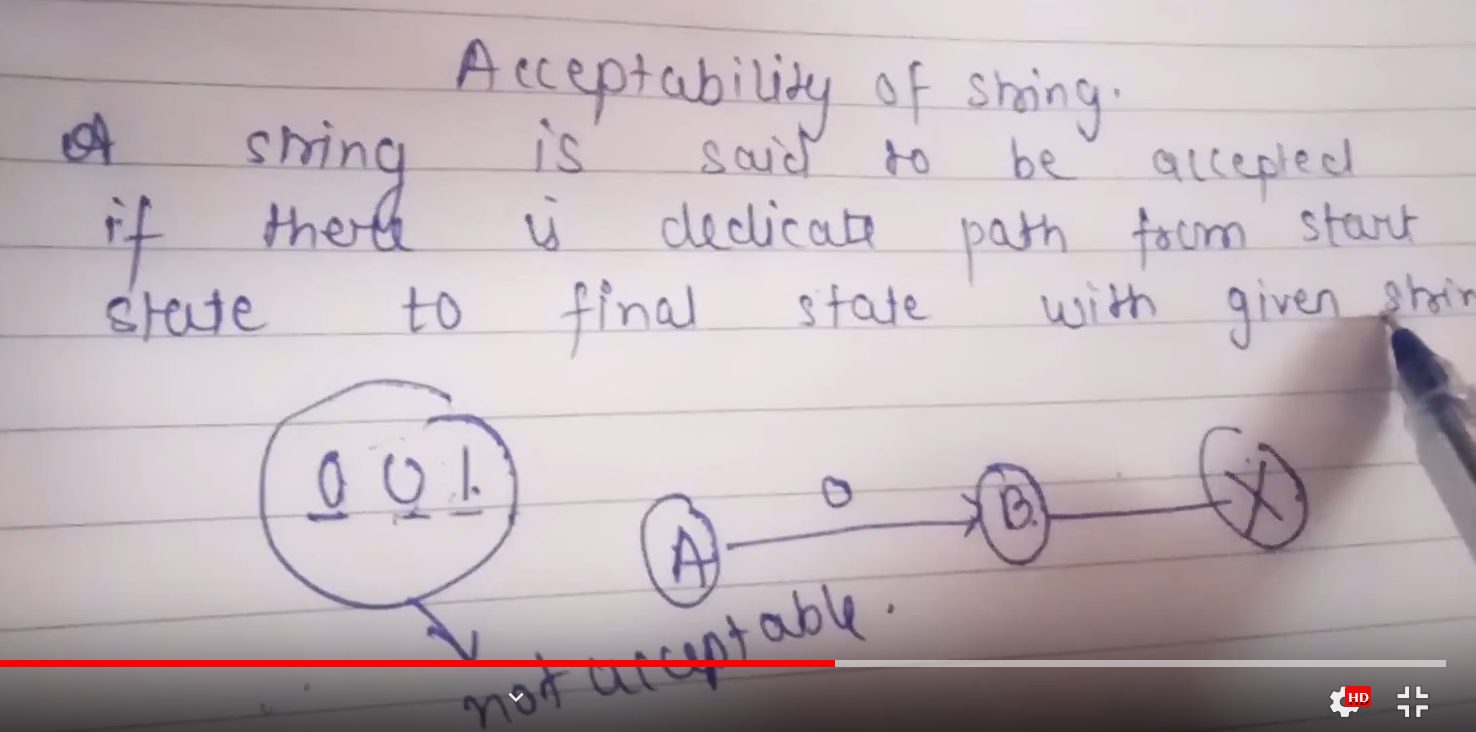 Acceptability of string.
A string is said to be accepted
if there is dedicate path from start
state to final state with given strin
0 0 1.
0
A B. X
not acceptable.
HD